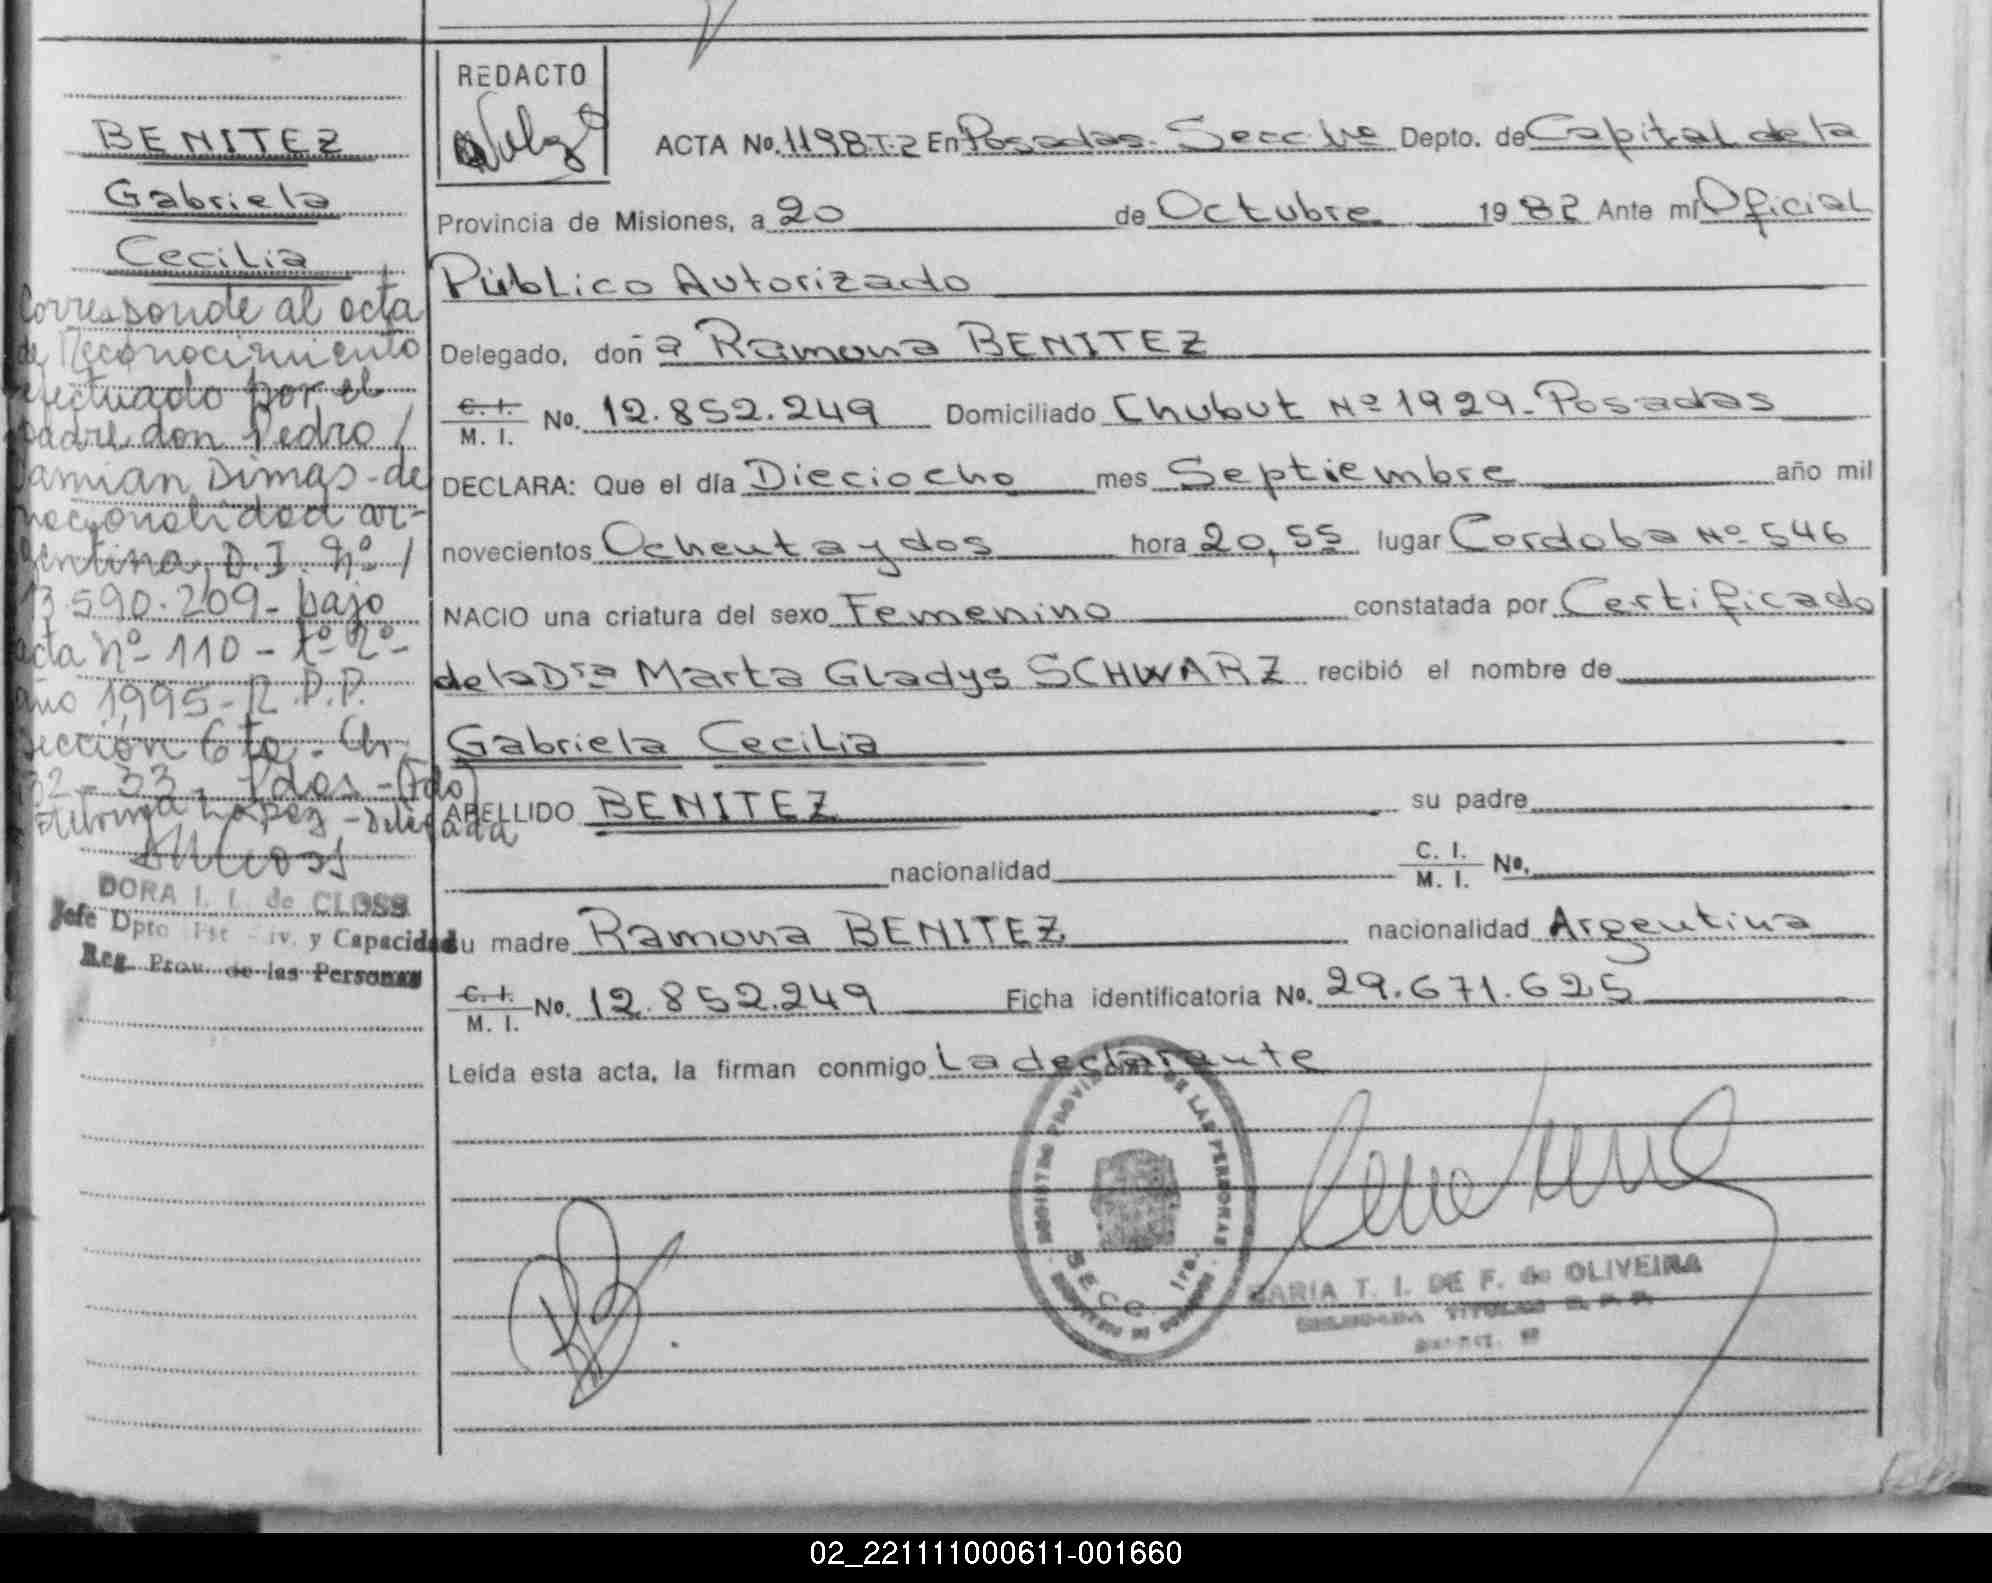 BENITEZ
Gabriela
Cecilia
Corresponde al acta
de Reconocimiento
efectuado por el
padre don Pedro /
Damian Dimas - de
nacionalidad ar-
gentina, D.I. Nº /
13.590.209 - bajo
acta Nº 110 - tº 2º -
año 1995 - R.P.P.
Sección 6ta -
32 - 33 - Fdos - (Fdo)
Lopez - Delegada
DORA I. I. de CLOSS
Jefe Dpto Est Civ. y Capacidad
Reg. Prov. de las Personas
REDACTO
ACTA No. 1198 T.2 En Posadas. Secc 1re Depto. de Capital de la
Provincia de Misiones, a 20 de Octubre 1982 Ante mí Oficial
Público Autorizado
Delegado, doña Ramona BENITEZ
C. I. / M. I. No. 12.852.249 Domiciliado Chubut Nº 1929 - Posadas
DECLARA: Que el día Dieciocho mes Septiembre año mil
novecientos Ochenta y dos hora 20,55 lugar Cordoba Nº 546
NACIO una criatura del sexo Femenino constatada por Certificado
de la Dra Marta Gladys SCHWARZ recibió el nombre de
Gabriela Cecilia
APELLIDO BENITEZ su padre
nacionalidad C. I. / M. I. No.
su madre Ramona BENITEZ nacionalidad Argentina
C. I. / M. I. No. 12.852.249 Ficha identificatoria No. 29.671.625
Leída esta acta, la firman conmigo La declarante
REGISTRO PROVINCIAL DE LAS PERSONAS
SECC. 1ra.
MARIA T. I. DE F. de OLIVEIRA
02_221111000611-001660